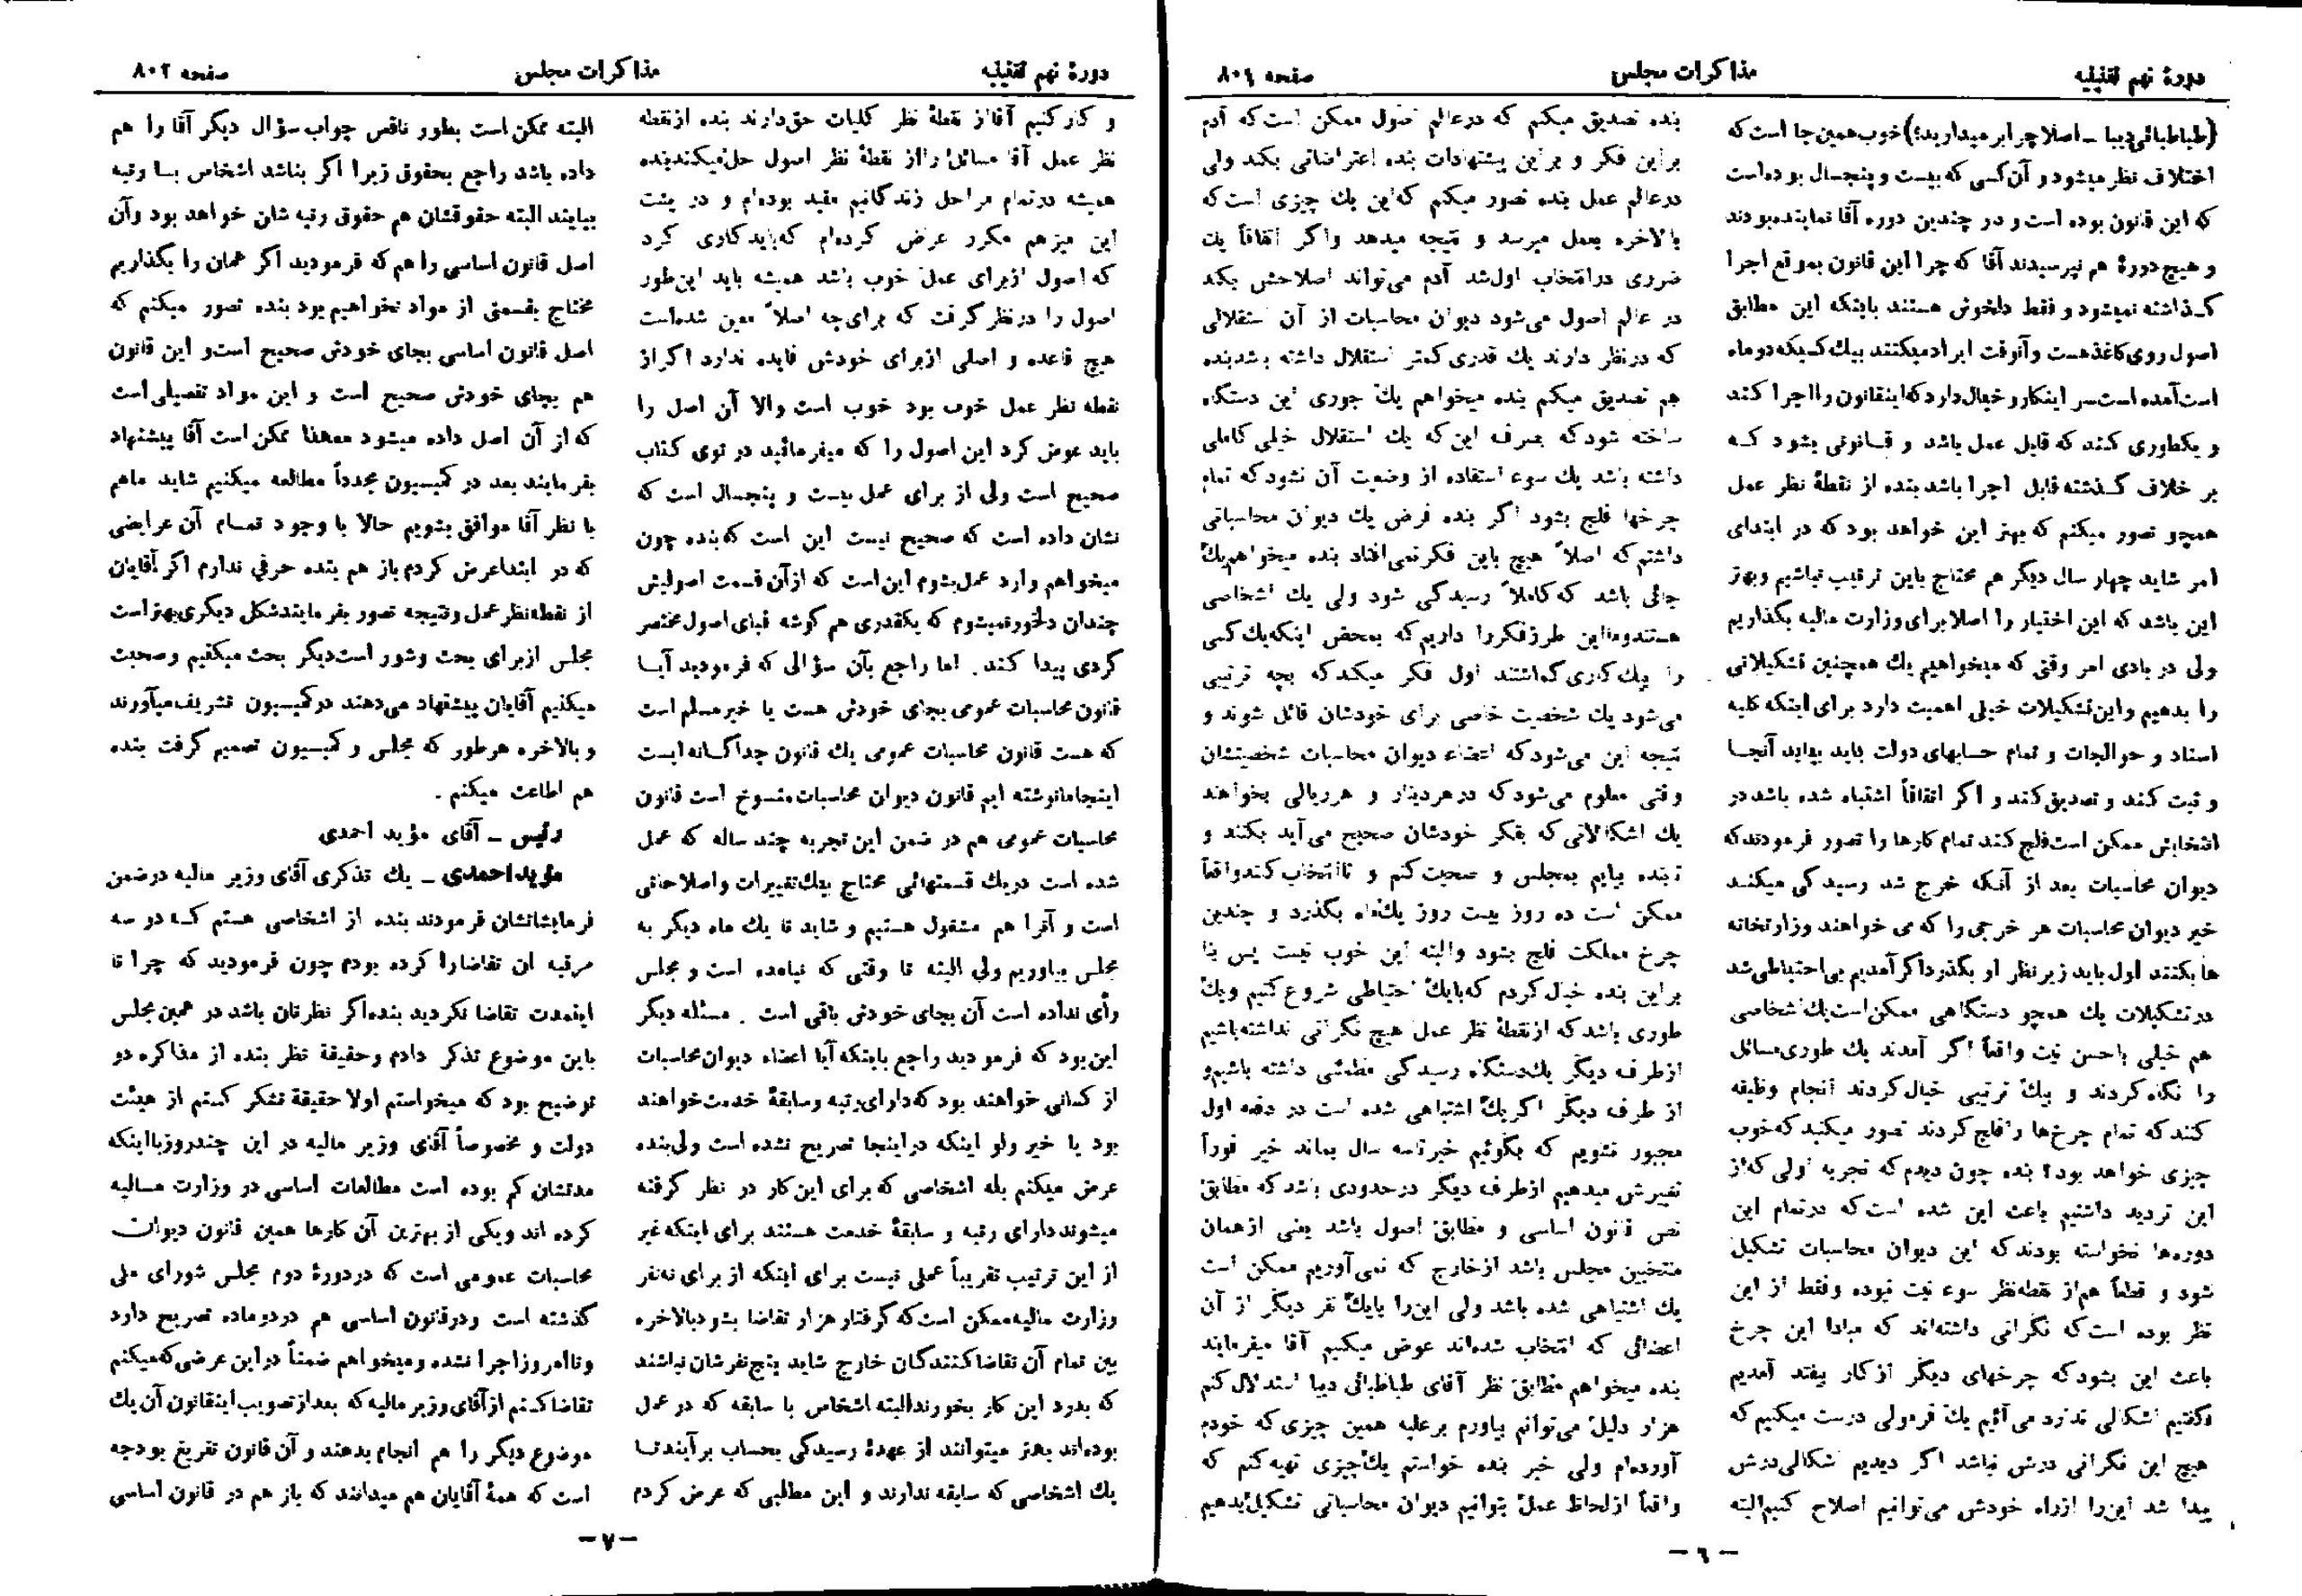 دورهٔ نهم تقنینیه
مذاکرات مجلس
صفحه ۸۰۱
(طباطبائی دیبا ـ اصلا چرا بر میدارید؟) خوب همین جا است که
اختلاف نظر میشود و آن کسی که بیست و پنجسال بوده است
که این قانون بوده است و در چندین دوره آقا نماینده بودند
و هیچ دورهٔ هم نپرسیدند آقا که چرا این قانون بموقع اجرا
گذاشته نمیشود و فقط دلخوش هستند باینکه این مطابق
اصول روی کاغذ هست و آنوقت ایراد میکنند بیک کسیکه دو ماه
است آمده است سر اینکار و خیال دارد که اینقانون را اجرا کند
و یکطوری کند که قابل عمل باشد و قانونی بشود که
بر خلاف گذشته قابل اجرا باشد بنده از نقطهٔ نظر عمل
همچو تصور میکنم که بهتر این خواهد بود که در ابتدای
امر شاید چهار سال دیگر هم محتاج باین ترتیب نباشیم و بهتر
این باشد که این اختیار را اصلا برای وزارت مالیه بگذاریم
ولی در بادی امر وقتی که میخواهیم یک همچنین تشکیلاتی
را بدهیم و این تشکیلات خیلی اهمیت دارد برای اینکه کلیه
اسناد و حوالجات و تمام حسابهای دولت باید بیاید آنجا
و ثبت کند و تصدیق کند و اگر اتفاقاً اشتباه شده باشد در
انتخابش ممکن است فلج کند تمام کارها را تصور فرمودند که
دیوان محاسبات بعد از آنکه خرج شد رسیدگی میکند
خیر دیوان محاسبات هر خرجی را که می خواهند وزارتخانه
ها بکنند اول باید زیر نظر او بگذرد اگر آمدیم بی احتیاطی شد
در تشکیلات یک همچو دستگاهی ممکن است یک اشخاصی
هم خیلی با حسن نیت واقعاً اگر آمدند یک طوری مسائل
را نگاه کردند و بیک ترتیبی خیال کردند انجام وظیفه
کنند که تمام چرخ‌ها را فلج کردند تصور میکنید که خوب
چیزی خواهد بود؟ بنده چون دیدم که تجربه اولی که از
این تردید داشتیم باعث این شده است که در تمام این
دوره‌ها نخواسته بودند که این دیوان محاسبات تشکیل
شود و قطعاً هم از نقطه نظر سوء نیت نبوده و فقط از این
نظر بوده است که نگرانی داشته‌اند که مبادا این چرخ
باعث این بشود که چرخهای دیگر از کار بیفتد آمدیم
و گفتیم اشکالی ندارد می آئیم یک فرمولی درست میکنیم که
هیچ این نگرانی درش نباشد اگر دیدیم اشکالی درش
پیدا شد این را از راه خودش می‌توانیم اصلاح کنیم البته
بنده تصدیق میکنم که در عالم اصول ممکن است که آدم
بر این فکر و بر این پیشنهادات بنده اعتراضاتی بکند ولی
در عالم عمل بنده تصور میکنم که این یک چیزی است که
بالاخره بعمل میرسد و نتیجه میدهد و اگر اتفاقاً یک
ضرری در انتخاب اول شد آدم می‌تواند اصلاحش بکند
در عالم اصول می‌شود دیوان محاسبات از آن استقلالی
که در نظر دارند یک قدری کمتر استقلال داشته باشد بنده
هم تصدیق میکنم بنده میخواهم یک جوری این دستگاه
ساخته شود که بصرف این که یک استقلال خیلی کاملی
داشته باشد یک سوء استفاده از وضعیت آن نشود که تمام
چرخها فلج بشود اگر بنده فرض یک دیوان محاسباتی
داشتم که اصلاً هیچ باین فکر نمی افتاد بنده میخواهم یک
جائی باشد که کاملاً رسیدگی شود ولی یک اشخاصی
هستند و ما این طرز فکر را داریم که بمحض اینکه یک کسی
را بیک کاری گماشتند اول فکر میکند که بچه ترتیبی
می‌شود یک شخصیت خاصی برای خودشان قائل شوند و
نتیجه این می‌شود که اعضاء دیوان محاسبات شخصیتشان
وقتی معلوم می‌شود که در هر دینار و هر ریالی بخواهند
یک اشکالاتی که بفکر خودشان صحیح می آید بکنند و
تا بنده بیایم بمجلس و صحبت کنم و تا انتخاب کنند واقعاً
ممکن است ده روز بیست روز یک ماه بگذرد و چندین
چرخ مملکت فلج بشود والبته این خوب نیست پس بنا
بر این بنده خیال کردم که با یک احتیاطی شروع کنیم و یک
طوری باشد که از نقطهٔ نظر عمل هیچ نگرانی نداشته باشیم
از طرف دیگر یک دستگاه رسیدگی مطمئنی داشته باشیم و
از طرف دیگر اگر یک اشتباهی شده است در دفعه اول
مجبور نشویم که بگوئیم خیر تا سه سال بماند خیر فوراً
تغییرش میدهیم از طرف دیگر در حدودی باشد که مطابق
نص قانون اساسی و مطابق اصول باشد یعنی از همان
منتخبین مجلس باشد از خارج که نمی آوریم ممکن است
یک اشتباهی شده باشد ولی این را با یک نفر دیگر از آن
اعضائی که انتخاب شده‌اند عوض میکنیم آقا میفرمایند
بنده میخواهم مطابق نظر آقای طباطبائی دیبا استدلال کنم
هزار دلیل می‌توانم بیاورم بر علیه همین چیزی که خودم
آورده‌ام ولی خیر بنده خواستم یک چیزی تهیه کنم که
واقعاً از لحاظ عمل بتوانیم دیوان محاسباتی تشکیل بدهیم
ـ ۶ ـ
دورهٔ نهم تقنینیه
مذاکرات مجلس
صفحه ۸۰۲
و کار کنیم آقا از نقطهٔ نظر کلیات حق دارند بنده از نقطه
نظر عمل آقا مسائل را از نقطهٔ نظر اصول حل میکنند بنده
همیشه در تمام مراحل زندگانیم مقید بوده‌ام و در پشت
این میز هم مکرر عرض کرده‌ام که باید کاری کرد
که اصول از برای عمل خوب باشد همیشه باید این طور
اصول را در نظر گرفت که برای چه اصلاً معین شده است
هیچ قاعده و اصلی از برای خودش فایده ندارد اگر از
نقطه نظر عمل خوب بود خوب است والا آن اصل را
باید عوض کرد این اصول را که میفرمائید در توی کتاب
صحیح است ولی از برای عمل بیست و پنجسال است که
نشان داده است که صحیح نیست این است که بنده چون
میخواهم وارد عمل بشوم این است که از آن قسمت اصولیش
چندان دلخور نمیشوم که یکقدری هم گوشه قبای اصول مختصر
گردی پیدا کند . اما راجع بآن سؤالی که فرمودید آیا
قانون محاسبات عمومی بجای خودش هست یا خیر مسلم است
که هست قانون محاسبات عمومی یک قانون جداگانه ایست
اینجا ما نوشته ایم قانون دیوان محاسبات منسوخ است قانون
محاسبات عمومی هم در ضمن این تجربه چند ساله که عمل
شده است در یک قسمتهائی محتاج بیک تغییرات و اصلاحاتی
است و آنرا هم مشغول هستیم و شاید تا یک ماه دیگر به
مجلس بیاوریم ولی البته تا وقتی که نیامده است و مجلس
رأی نداده است آن بجای خودش باقی است . مسئله دیگر
این بود که فرمودید راجع باینکه آیا اعضاء دیوان محاسبات
از کسانی خواهند بود که دارای رتبه و سابقهٔ خدمت خواهند
بود یا خیر ولو اینکه در اینجا تصریح نشده است ولی بنده
عرض میکنم بله اشخاصی که برای این کار در نظر گرفته
میشوند دارای رتبه و سابقهٔ خدمت هستند برای اینکه غیر
از این ترتیب تقریباً عملی نیست برای اینکه از برای نه نفر
وزارت مالیه ممکن است که گرفتار هزار تقاضا بشود بالاخره
بین تمام آن تقاضا کنندگان خارج شاید پنج نفرشان نباشند
که بدرد این کار بخورند البته اشخاص با سابقه که در عمل
بوده‌اند بهتر میتوانند از عهدهٔ رسیدگی بحساب بر آیند تا
یک اشخاصی که سابقه ندارند و این مطلبی که عرض کردم
البته ممکن است بطور ناقص جواب سؤال دیگر آقا را هم
داده باشد راجع بحقوق زیرا اگر بناشد اشخاص با رتبه
بیایند البته حقوقشان هم حقوق رتبه شان خواهد بود و آن
اصل قانون اساسی را هم که فرمودید اگر همان را بگذاریم
محتاج بقسمتی از مواد نخواهیم بود بنده تصور میکنم که
اصل قانون اساسی بجای خودش صحیح است و این قانون
هم بجای خودش صحیح است و این مواد تفصیلی است
که از آن اصل داده میشود معهذا ممکن است آقا پیشنهاد
بفرمایند بعد در کمیسیون مجدداً مطالعه میکنیم شاید ما هم
با نظر آقا موافق بشویم حالا با وجود تمام آن عرایضی
که در ابتدا عرض کردم باز هم بنده حرفی ندارم اگر آقایان
از نقطه نظر عمل و نتیجه تصور بفرمایند شکل دیگری بهتر است
مجلس از برای بحث و شور است دیگر بحث میکنیم و صحبت
میکنیم آقایان پیشنهاد می‌دهند در کمیسیون تشریف میآورند
و بالاخره هر طور که مجلس و کمیسیون تصمیم گرفت بنده
هم اطاعت میکنم .
رئیس ـ آقای مؤید احمدی
مؤید احمدی ـ یک تذکری آقای وزیر مالیه در ضمن
فرمایشاتشان فرمودند بنده از اشخاصی هستم که دو سه
مرتبه این تقاضا را کرده بودم چون فرمودید که چرا تا
اینمدت تقاضا نکردید بنده اگر نظرتان باشد در همین مجلس
باین موضوع تذکر دادم و حقیقة نظر بنده از مذاکره دو
توضیح بود که میخواستم اولا حقیقة تشکر کنم از هیئت
دولت و مخصوصاً آقای وزیر مالیه در این چند روز با اینکه
مدتشان کم بوده است مطالعات اساسی در وزارت مالیه
کرده اند و یکی از بهترین آن کارها همین قانون دیوان
محاسبات عمومی است که در دورهٔ دوم مجلس شورای ملی
گذشته است و در قانون اساسی هم در دو ماده تصریح دارد
و تا امروز اجرا نشده و میخواهم ضمناً در این عرضی که میکنم
تقاضا کنم از آقای وزیر مالیه که بعد از تصویب اینقانون آن یک
موضوع دیگر را هم انجام بدهند و آن قانون تفریغ بودجه
است که همهٔ آقایان هم میدانند که باز هم در قانون اساسی
ـ ۷ ـ